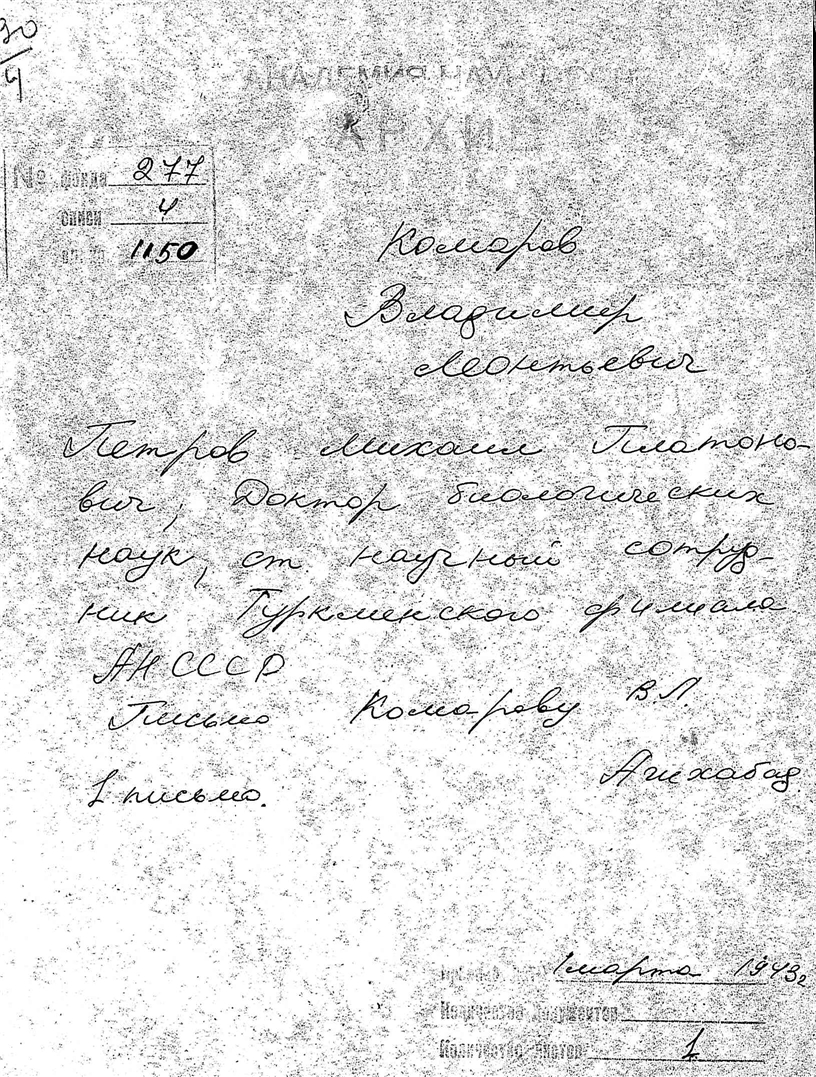 АКАДЕМИЯ НАУК
АРХИВ
№ фонда 277
описи 4
1150
Комаров
Владимир
Леонтьевич
Петров Михаил Платоно-
вич, Доктор биологических
наук, ст научный сотруд-
ник Туркменского филиала
АН СССР
Письмо Комарову В.Л.
Ашхабад.
1 письмо.
1 марта 1943г
Количество документов
Количество листов 1